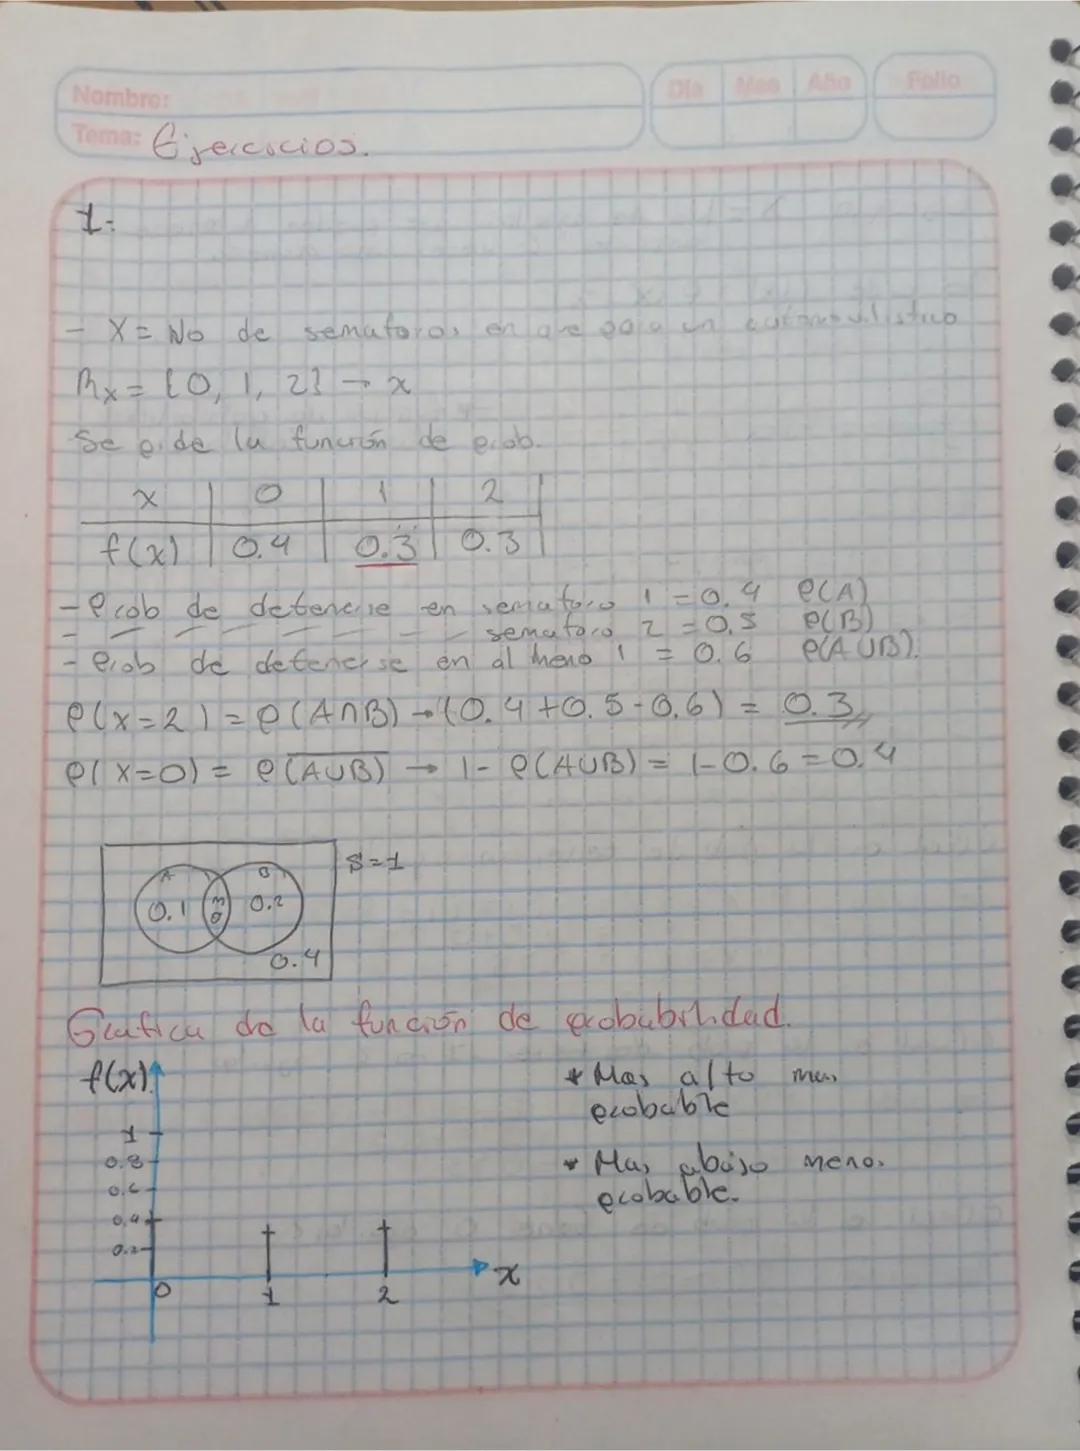 Nombre:
Día Mes Año Folio
Tema: Ejercicios.
1-
- X = No de semaforos en que para un automovilistico
Rx = {0, 1, 2} → x
Se pide la función de prob.
x 0 1 2
f(x) 0.4 0.3 0.3
- Prob de detenerse en semaforo 1 = 0.4 P(A)
- semaforo 2 = 0.5 P(B)
- Prob de detenerse en al meno 1 = 0.6 P(A∪B).
P(x=2) = P(A∩B) → (0.4+0.5-0.6) = 0.3
P(x=0) = P(\overline{A∪B}) → 1- P(A∪B) = 1-0.6=0.4
S=1
A B
0.1 0.3 0.2
0.4
Grafica de la función de probabilidad.
f(x)
* Mas alto mas
probable
* Mas abajo menos
probable.
1
0.8
0.6
0.4
0.2
0 1 2 x